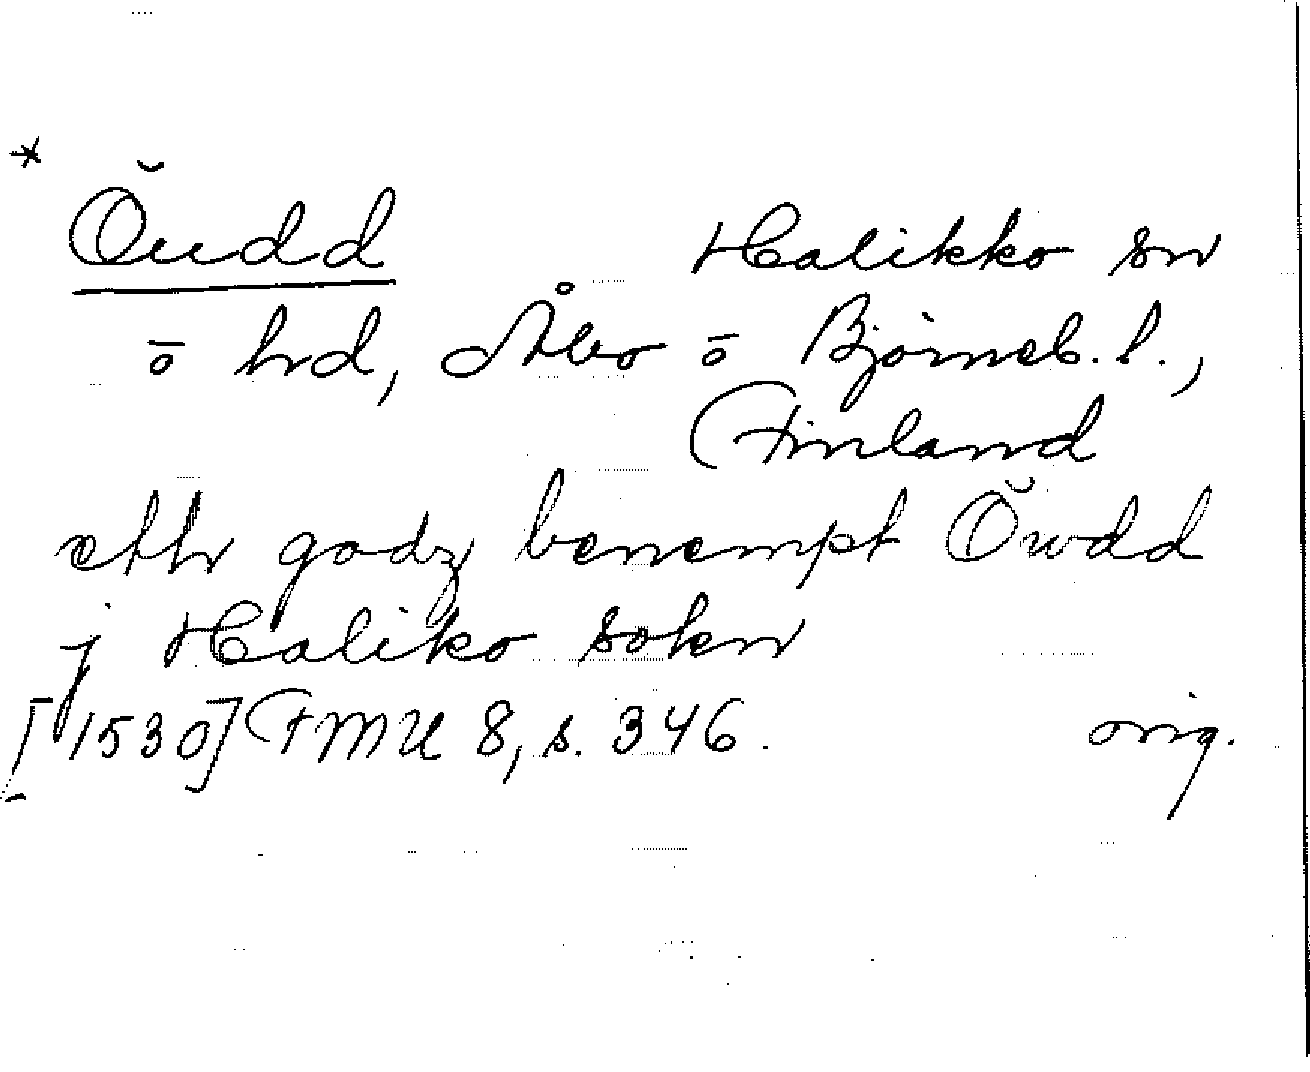 * Öudd Halikko sn
o hd, Åbo o Björneb. l.,
Finland
etth godz benempt Öwdd
j Haliko sokn
[1530] FMU 8, s. 346. orig.